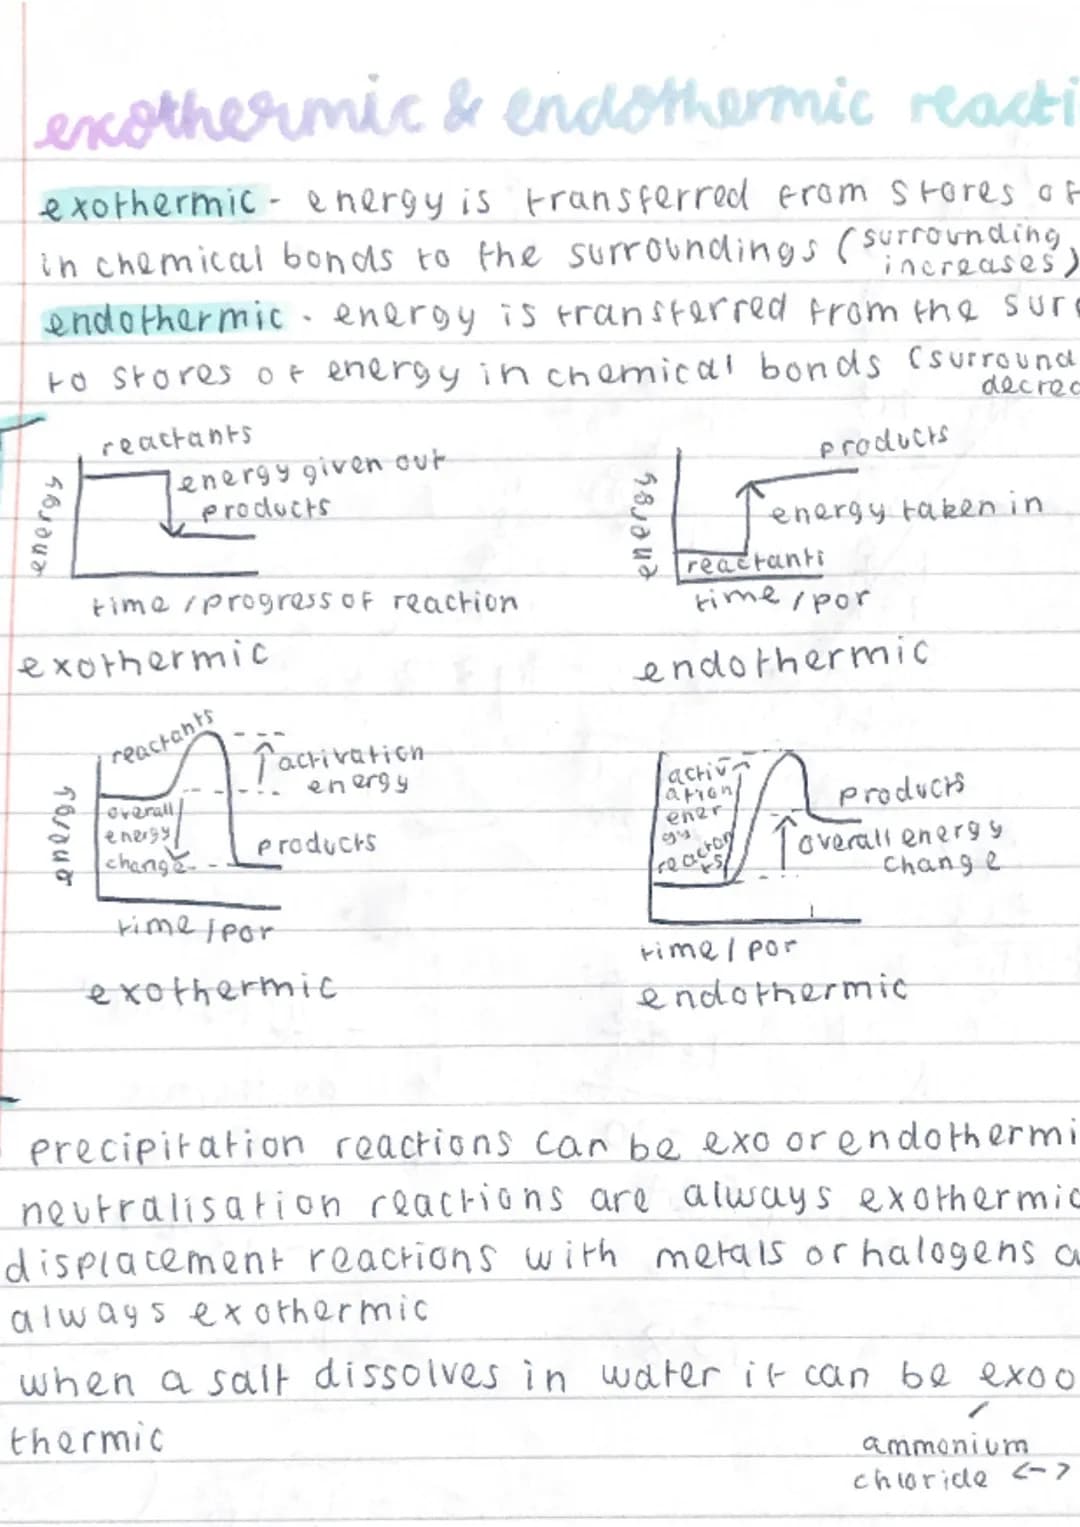 exothermic & endothermic reacti
exothermic - energy is transferred from stores of
in chemical bonds to the surroundings (surrounding
increases)
endothermic - energy is transferred from the surr
to stores of energy in chemical bonds (surround
decrea
reactants
energy given out
products
energy
time / progress of reaction
exothermic
products
energy taken in
energy
reactants
time / por
endothermic
reactants
activation
energy
overall
energy
change
products
energy
time / por
exothermic
activ
ation
ener
gy
reactan
ts
products
overall energy
change
time / por
endothermic
precipitation reactions can be exo or endothermi
neutralisation reactions are always exothermic
displacement reactions with metals or halogens a
always exothermic
when a salt dissolves in water it can be exo o
thermic
ammonium
chloride <->